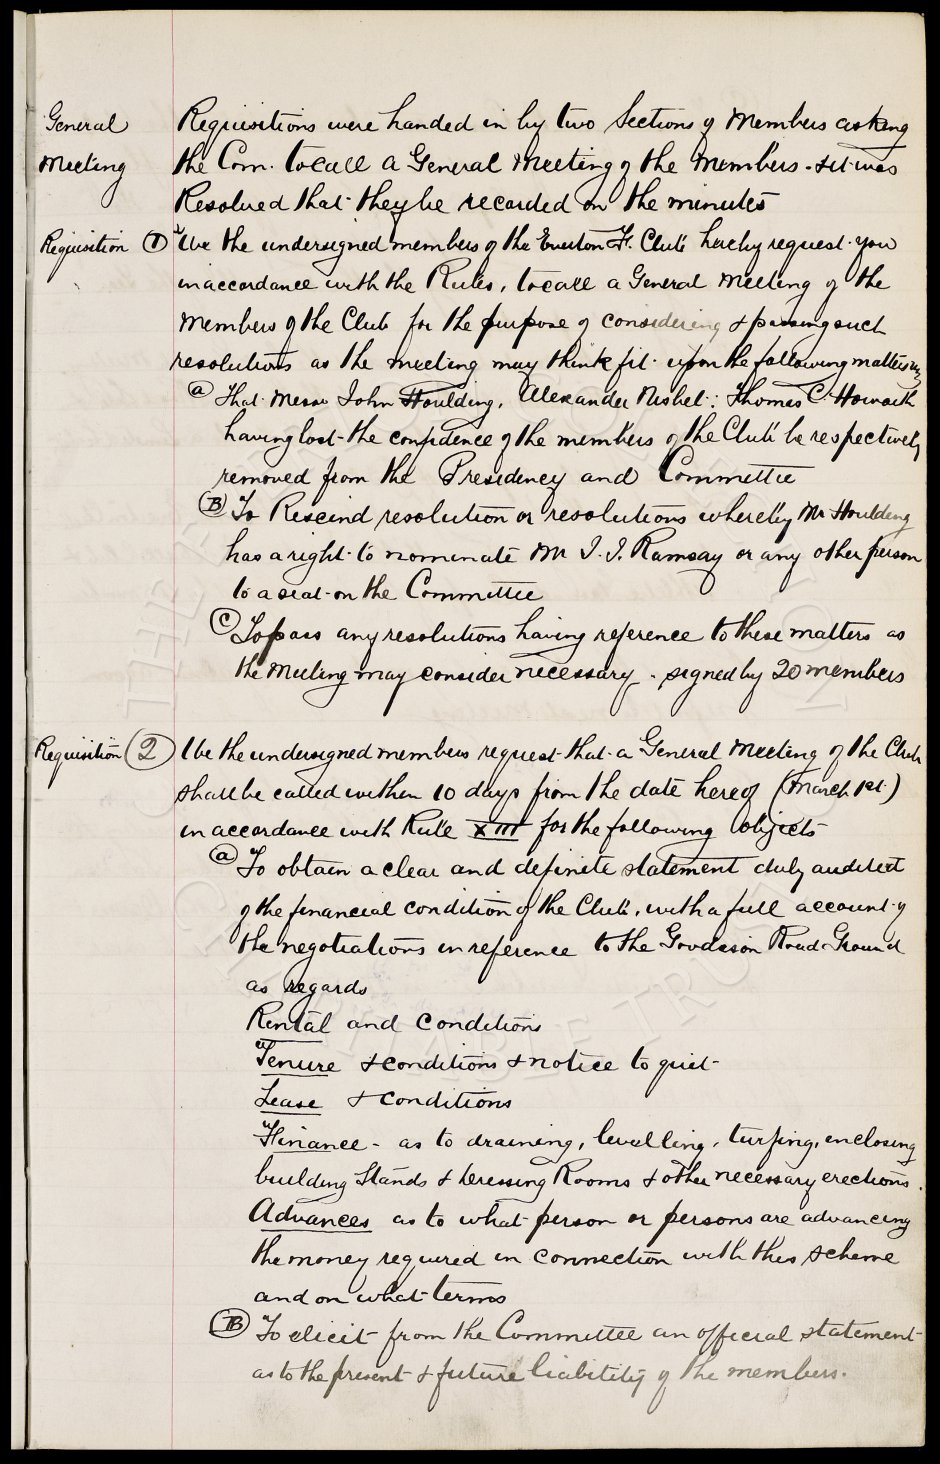 General Meeting
Requisitions were handed in by two Sections of Members asking
the Com. to call a General Meeting of the Members. & it was
Resolved that they be recorded on the minutes
Requisition ① "We the undersigned members of the Everton F. Club hereby request you
in accordance with the Rules, to call a General Meeting of the
Members of the Club for the purpose of considering & passing such
resolutions as the meeting may think fit upon the following matters viz
(a) That Messrs John Houlding, Alexander Nisbet: Thomas C. Howarth
having lost the confidence of the members of the Club be respectively
removed from the Presidency and Committee
(B) To Rescind resolution or resolutions whereby Mr Houlding
has a right to nominate Mr J. J. Ramsay or any other person
to a seat on the Committee
(C) To pass any resolutions having reference to these matters as
the Meeting may consider necessary. signed by 20 members
Requisition (2) We the undersigned members request that a General Meeting of the Club
shall be called within 10 days from the date hereof (March 1st.)
in accordance with Rule XIII for the following objects
(a) To obtain a clear and definite statement duly audited
of the financial condition of the Club, with a full account of
the negotiations in reference to the Goodison Road Ground
as regards
Rental and conditions
"Tenure & conditions & notice to quit
Lease & conditions
"Finance - as to draining, levelling, turfing, enclosing
building Stands & Dressing Rooms & other necessary erections.
Advances as to what person or persons are advancing
the money required in connection with this scheme
and on what terms
(B) To elicit from the Committee an official statement
as to the present & future liability of the members.